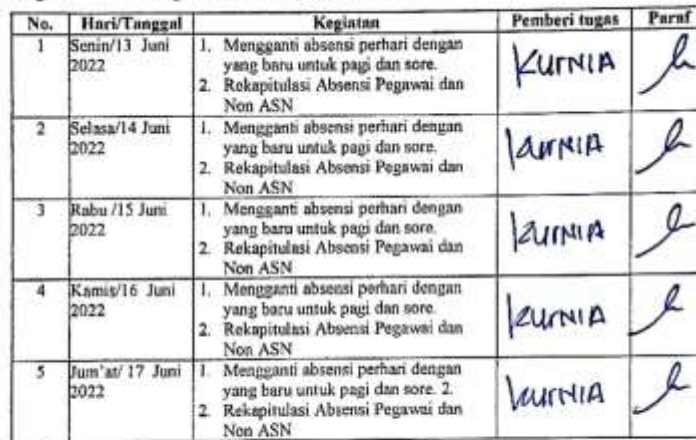 No. Hari/Tanggal Kegiatan Pemberi tugas Paraf
1 Senin/13 Juni 1. Mengganti absensi perhari dengan KURNIA
2022 yang baru untuk pagi dan sore.
2. Rekapitulasi Absensi Pegawai dan
Non ASN
2 Selasa/14 Juni 1. Mengganti absensi perhari dengan KURNIA
2022 yang baru untuk pagi dan sore.
2. Rekapitulasi Absensi Pegawai dan
Non ASN
3 Rabu /15 Juni 1. Mengganti absensi perhari dengan KURNIA
2022 yang baru untuk pagi dan sore.
2. Rekapitulasi Absensi Pegawai dan
Non ASN
4 Kamis/16 Juni 1. Mengganti absensi perhari dengan KURNIA
2022 yang baru untuk pagi dan sore.
2. Rekapitulasi Absensi Pegawai dan
Non ASN
5 Jum'at/ 17 Juni 1. Mengganti absensi perhari dengan KURNIA
2022 yang baru untuk pagi dan sore. 2.
2. Rekapitulasi Absensi Pegawai dan
Non ASN